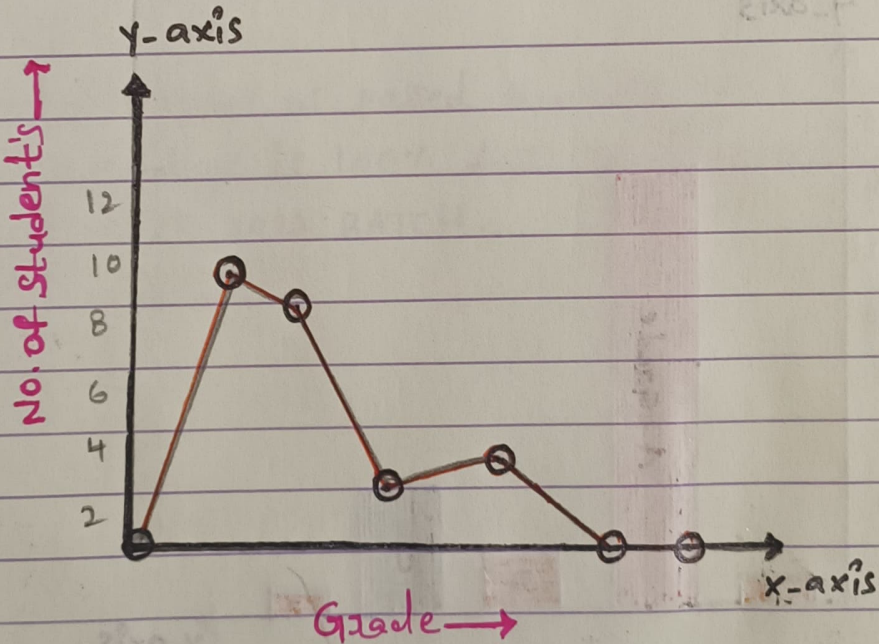 y-axis
No. of Student's
12
10
8
6
4
2
x-axis
Grade